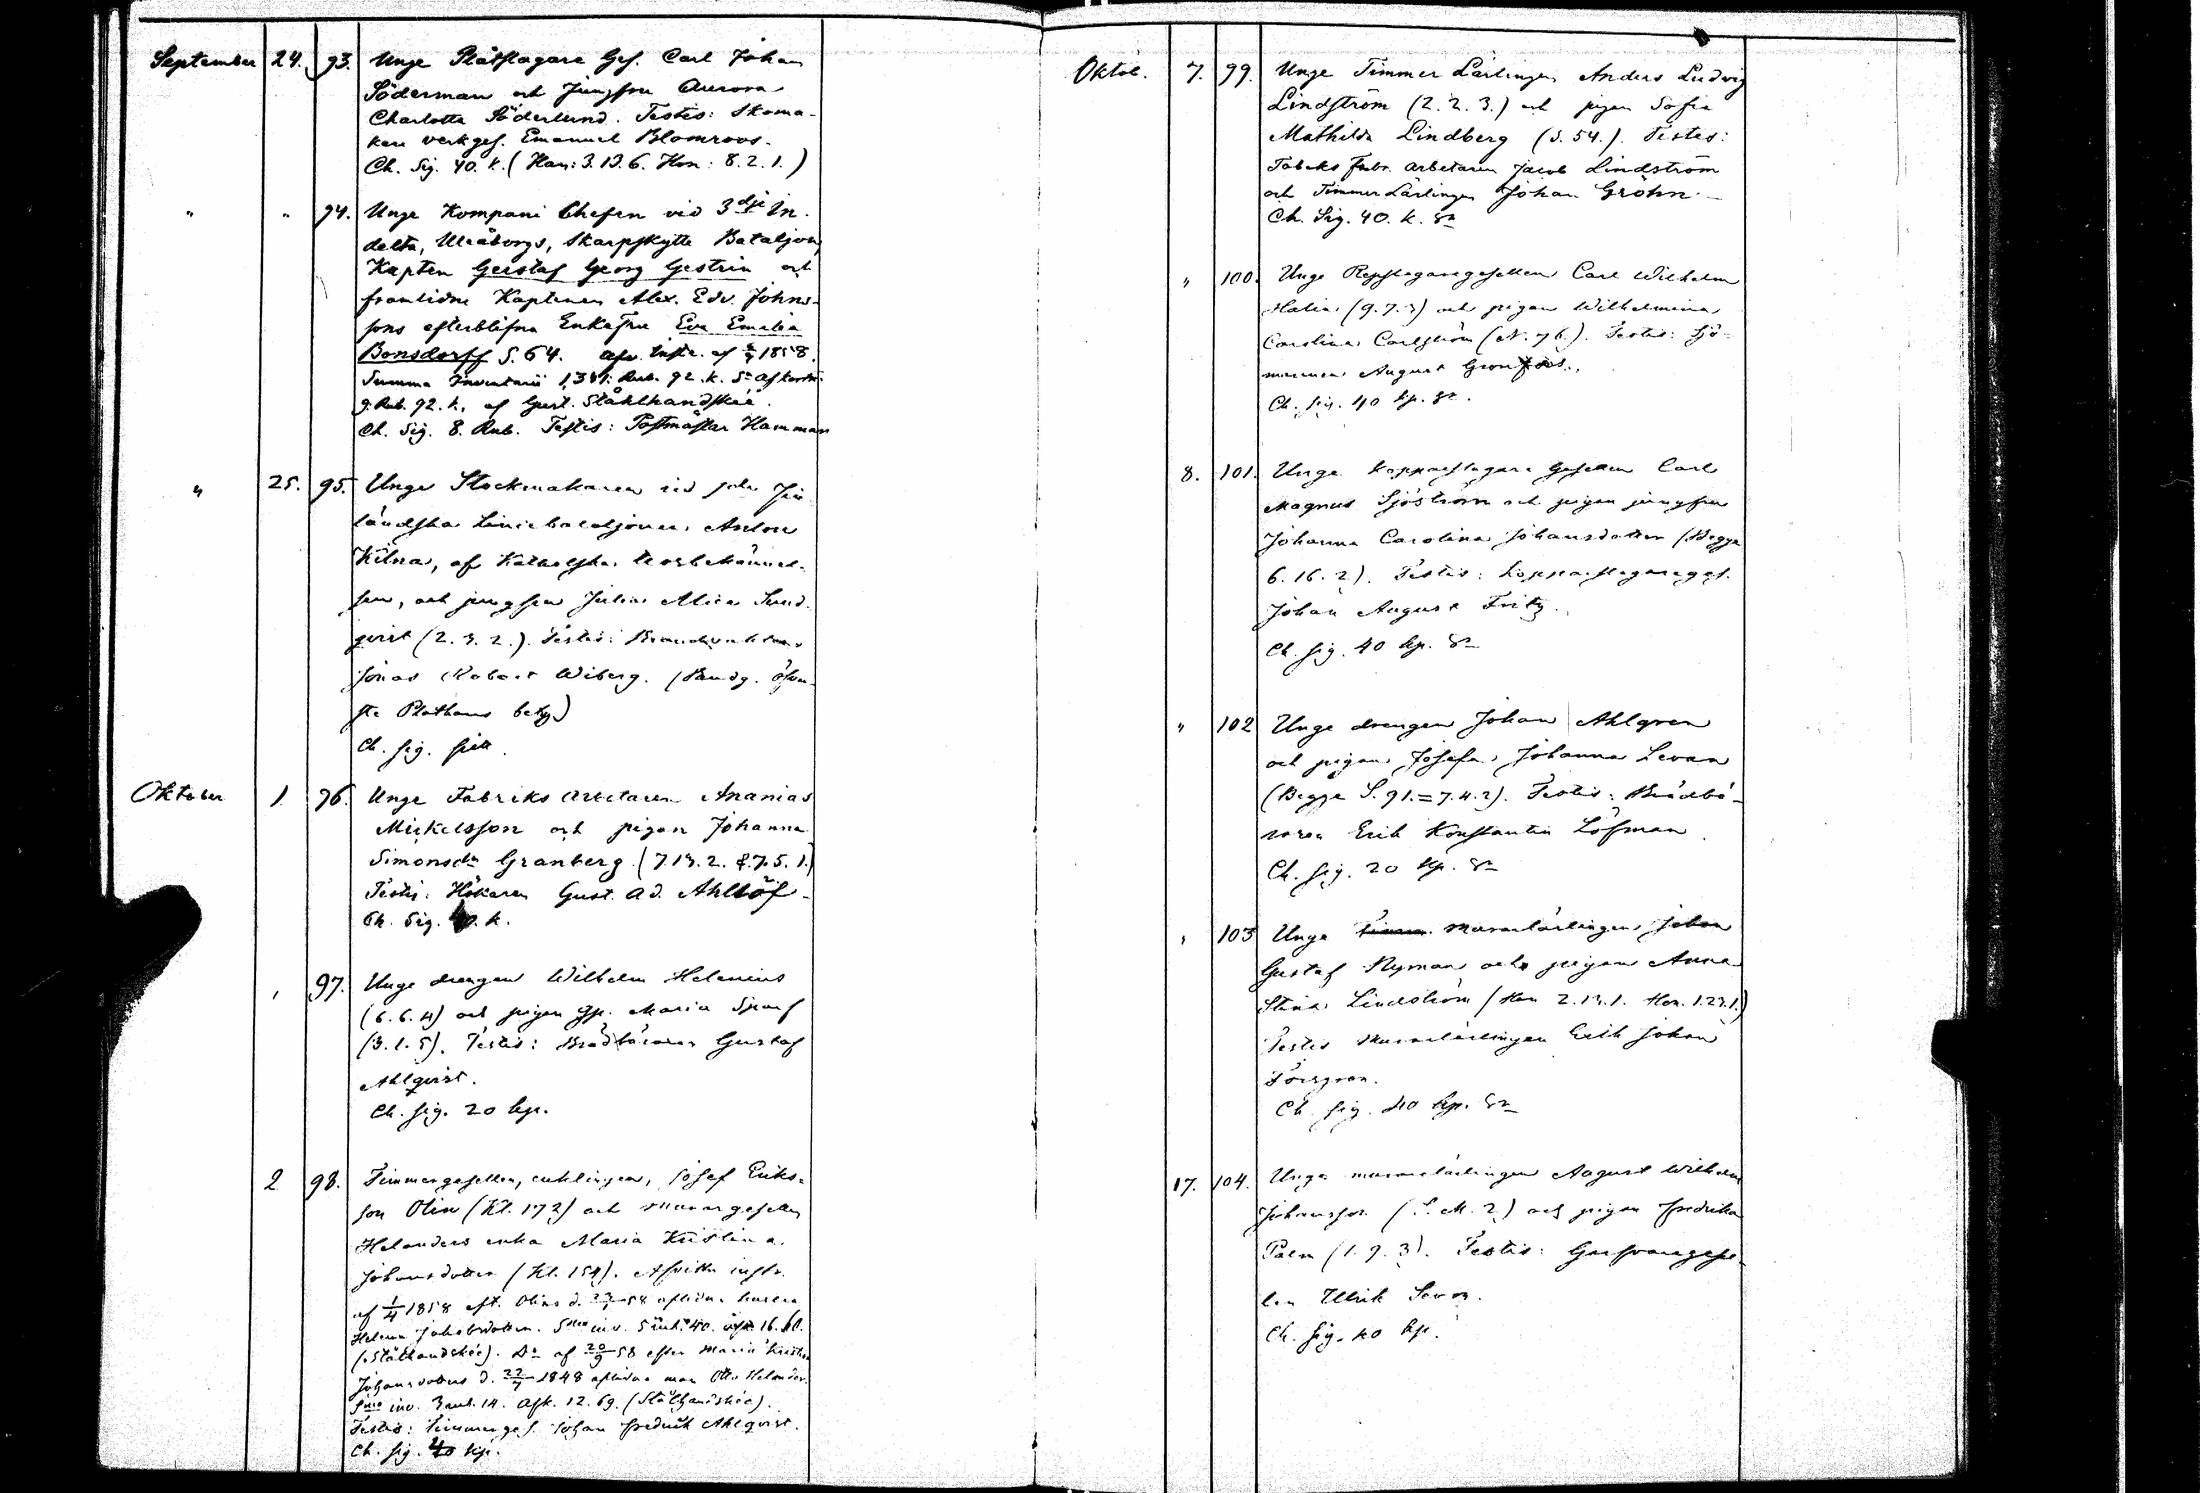 September 24. 93. Unge Plåtslagare Ges. Carl Johan
Söderman och Jungfru Aurora
Charlotta Söderlund. Testis: Skoma-
kare verkges. Emanuel Blomroos.
Ch. Sig. 40. k. (Han: 3.13.6. Hon: 8.2.1.)
" " 94. Unge Kompani Chefen vid 3dje In-
delta, Uleåborgs, Skarpskytte Bataljon,
Kapten Gustaf Georg Gestrin och
framlidne Kaptenen Alex. Edv. Johns-
sons efterblifna Enkefru Eva Emilia
Bonsdorff S. 64. afv. Instr. af 1858.
Summa Inventarii 1,381: Rub. 92. k.
9. Rub. 92. k. af Gust. Stålhandske.
Ch. Sig. 8. Rub. Testis: Postmästar Hamman
" 25. 95. Unge Stockmakaren vid Fin-
ländska Liniebataljonen, Anton
Kilna, af Katholska trosbekännel-
sen, och jungfru Julia Alica Sund-
qvist (2.3.2.). Testis: Brandvakten
Jonas Robert Wiberg.
Ch. sig.
Oktober 1. 96. Unge Fabriks Arbetaren Ananias
Mickelsson och pigan Johanna
Simonsdr Granberg (7.13.2. & 7.5.1.)
Testis: Hökaren Gust. Ad. Ahllöf.
Ch. Sig. k.
97. Unge drengen Wilhelm Helenius
(6.6.4) och pigan Maria
(3.1.5). Testis: Brädbäraren Gustaf
Ahlqvist.
Ch. sig. 20 kp.
2 98. Timmergesellen, enklingen, Josef Eriks-
son Olin (Kl. 172) och muraregesellen
Helanders enka Maria Kristina
Johansdotter (Kl. 154). Afvittr. instr.
af 1/4 1858 eft. Olins d. aflidna hustru
Helena Jakobsdotter.
(Stålhandske). Do af 20/9 58 efter Maria Kristina
Johansdotters d. 1848 aflidna man Otto Helander.
inv. 3 rub. 14. Afk. 12.69. (Stålhandske).
Testis: Timmerges. Johan Fredrik Ahlqvist.
Ch. sig. 40 kp.
Oktob. 7. 99. Unge Timmer Lärlingen Anders Ludvig
Lindström (2.2.3.) och pigan Sofia
Mathilda Lindberg (S. 54.). Testes:
Tobaks Fabr. arbetaren Jacob Lindström
och Timmer Lärlingen Johan Gröhn.
Ch. Sig. 40. k. Sr
" 100. Unge Repslagaregesellen Carl Wilhelm
Halin (9.7.3) och pigan Wilhelmina
Carolina Carlström (N. 76.). Testis: Sjö-
mannen August
Ch. sig. 40 kp. Sr.
8. 101. Unge Kopparslagare Gesellen Carl
Magnus Sjöström och pigan jungfru
Johanna Carolina Johansdotter (Begge
6.16.2). Testis: Kopparslagareges.
Johan August Fritz.
Ch. sig. 40 kp. Sr
" 102 Unge drengen Johan Ahlgren
och pigan Josefa Johanna Levan
(Begge S. 91. = 7.4.2). Testis: Brädbä-
raren Erik Konstantin Löfman.
Ch. sig. 20 kp. Sr
" 103 Unge murarlärlingen Johan
Gustaf Nyman och pigan Anna
Stina Lindström (Han 2.13.1. Hon. 1.23.1.)
Testis Murarlärlingen Erik Johan
Ch. sig. 40 kp. Sr
17. 104. Unge murarlärlingen August Wilhelm
Johansson (S. M. 2) och pigan Fredrika
Palm (1.9.3). Testis: Garfvaregesel-
len Ulrik
Ch. sig. 40 kp.